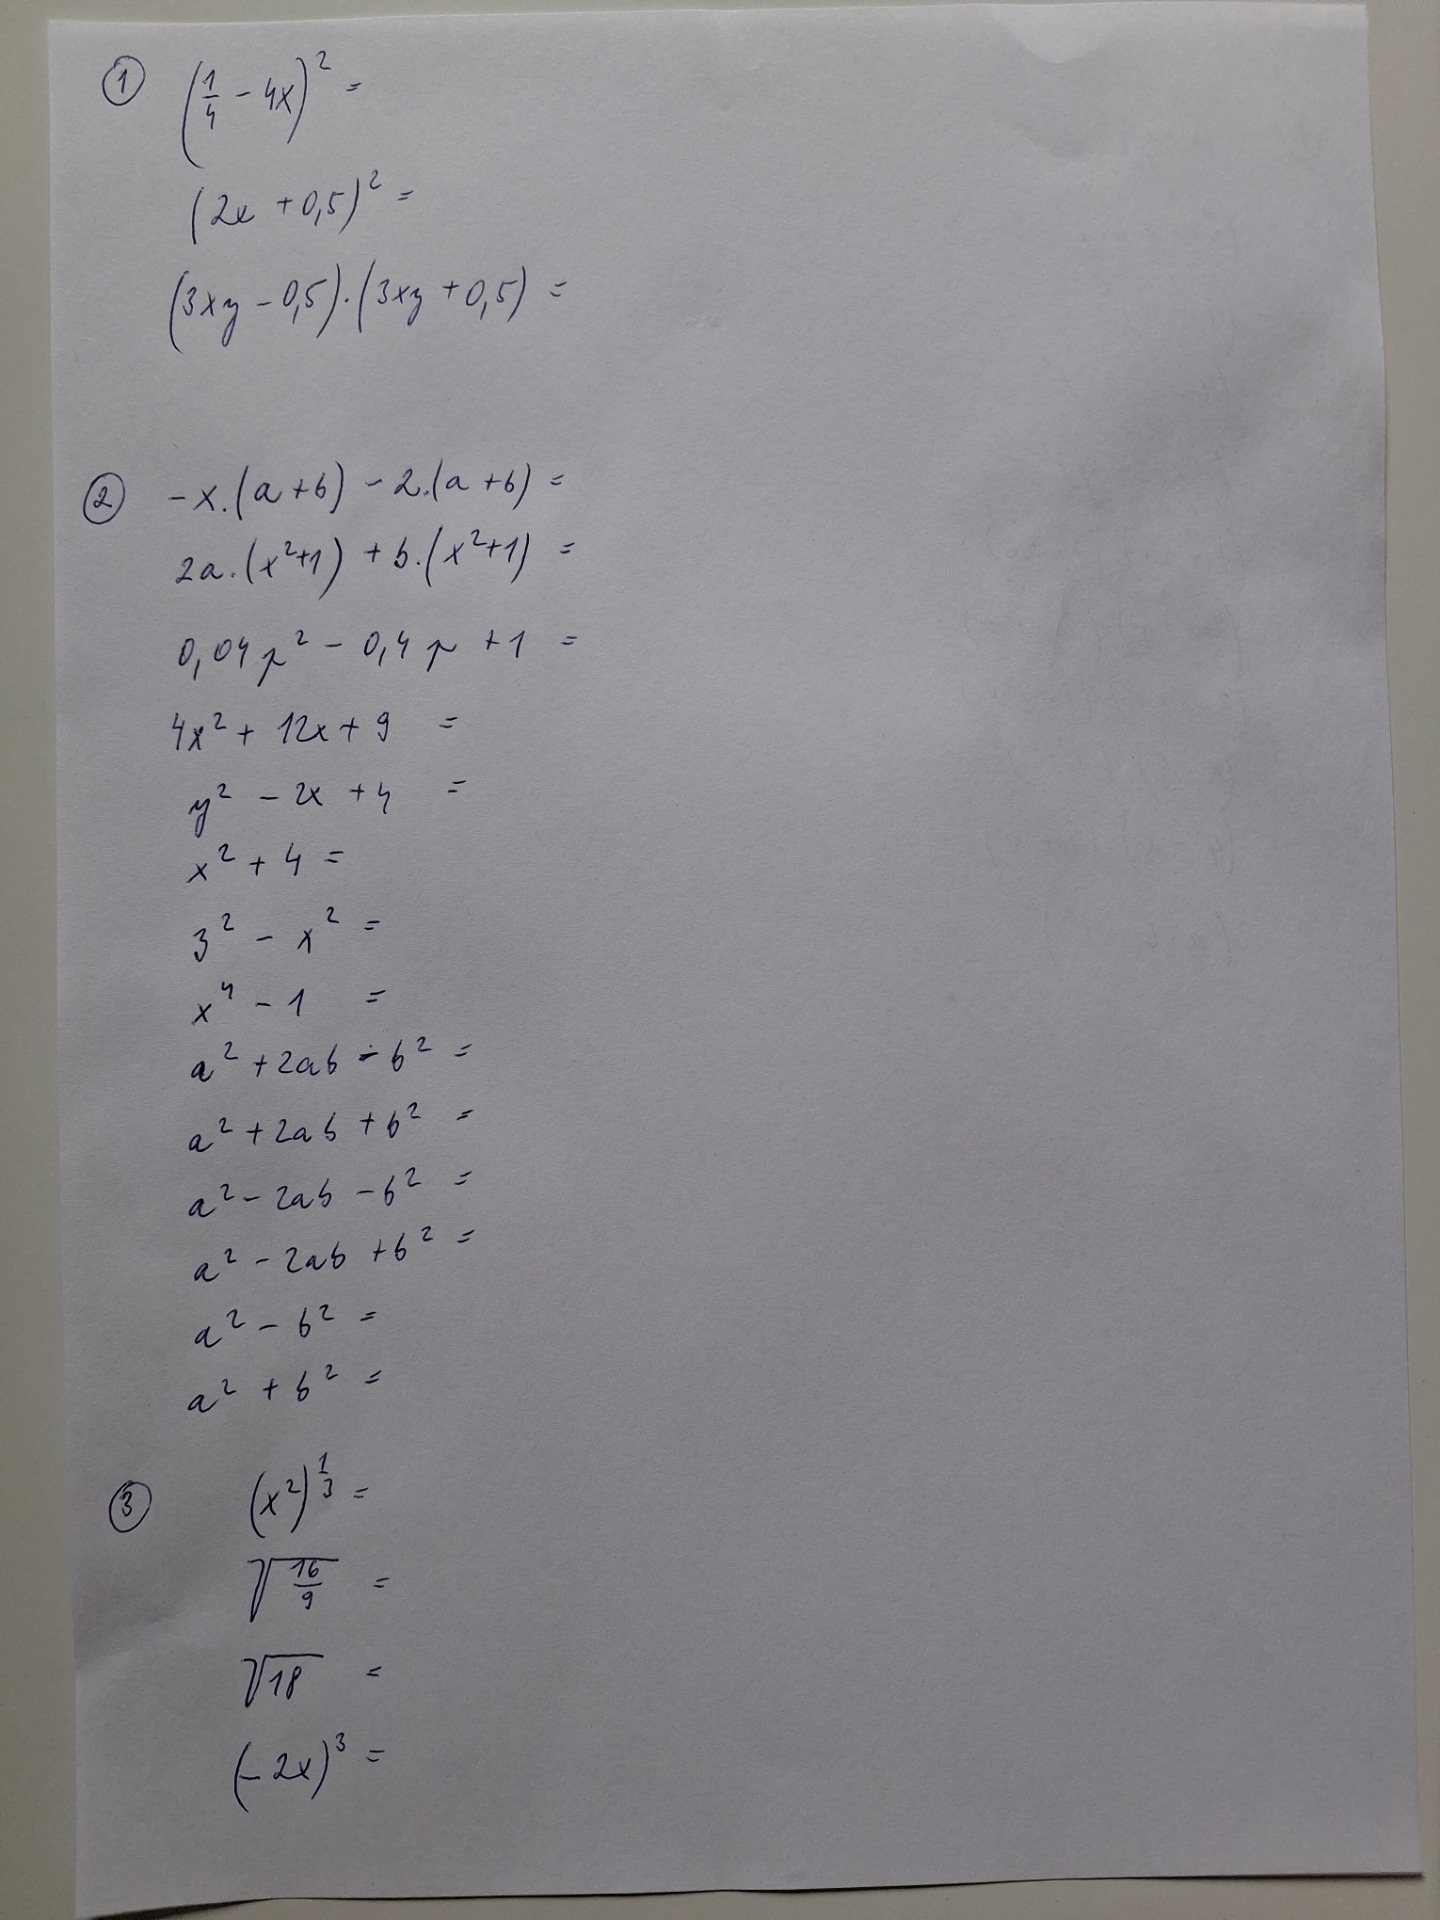 ① (1/4 - 4x)² =
(2x + 0,5)² =
(3xy - 0,5)·(3xy + 0,5) =
② -x.(a+b) - 2.(a+b) =
2a.(x²+1) + b.(x²+1) =
0,04p² - 0,4p + 1 =
4x² + 12x + 9 =
y² - 2x + 4 =
x² + 4 =
3² - x² =
x⁴ - 1 =
a² + 2ab - b² =
a² + 2ab + b² =
a² - 2ab - b² =
a² - 2ab + b² =
a² - b² =
a² + b² =
③ (x²)^(1/3) =
√(16/9) =
√18 =
(-2x)³ =